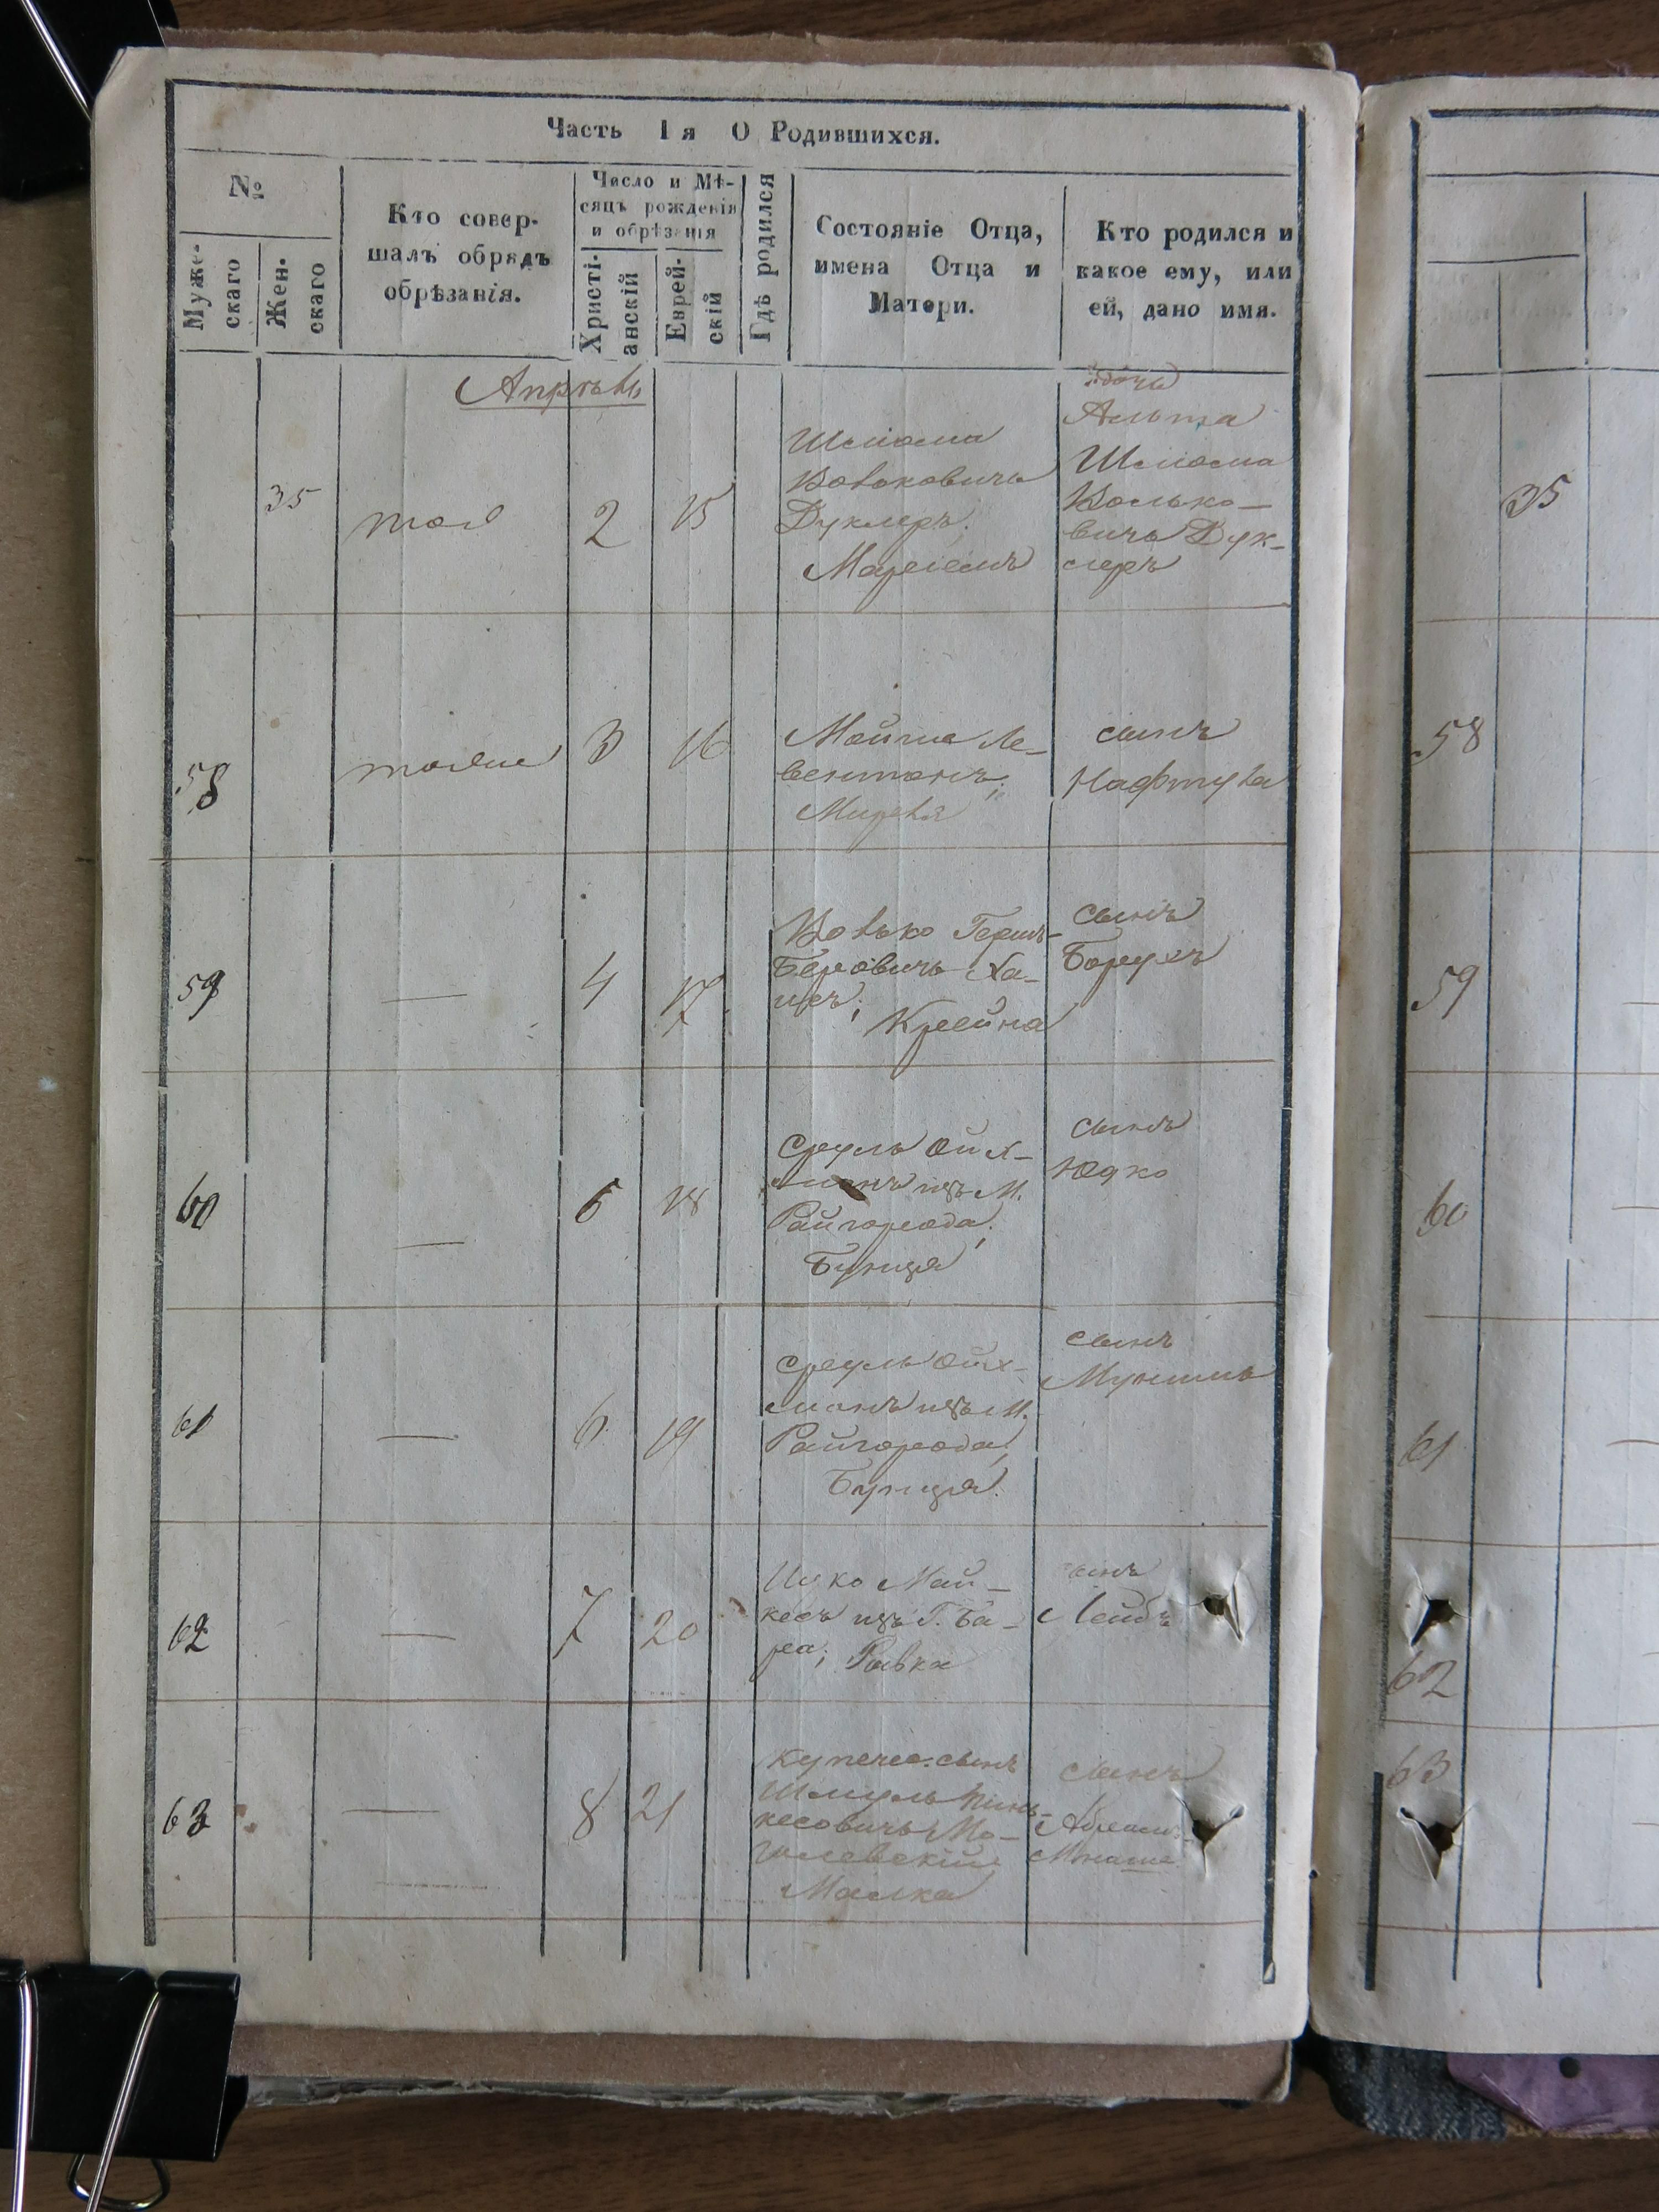 Часть Iя О Родившихся.
№
Мужескаго
Женскаго
Кто совершалъ обрядъ обрѣзанія.
Число и Мѣсяцъ рожденія и обрѣзанія
Христіанскій
Еврейскій
Гдѣ родился
Состояніе Отца, имена Отца и Матери.
Кто родился и какое ему, или ей, дано имя.
Апрѣль
35
2
15
Шлiома
Вольковичъ
Дуклеръ;
Маріемъ
дочь
Альта
Шлiома
Волько-
вичъ Дук-
леръ
35
58
3
16
Мойше Ле-
вентонъ;
Миреля
сынъ
Нафтула
58
59
—
4
17
Волько Герш-
Беровичъ Ха-
цеъ;
Крейна
сынъ
Борухъ
59
60
—
5
18
Сруль Ойх-
манъ изъ М.
Райгорода;
Бунця
сынъ
Юдко
60
61
—
6
19
Сруль Ойх-
манъ изъ М.
Райгорода;
Бунця
сынъ
Мунишъ
61
62
—
7
20
Ицко Май-
кесъ изъ Г. Ба-
ра; Ривка
сынъ
Лейбъ
62
63
—
8
21
Купечес. сынъ
Шмуль Пинь-
кесовичъ Мо-
гилевскій
Малка
сынъ
Абрамъ-
Монаше
63